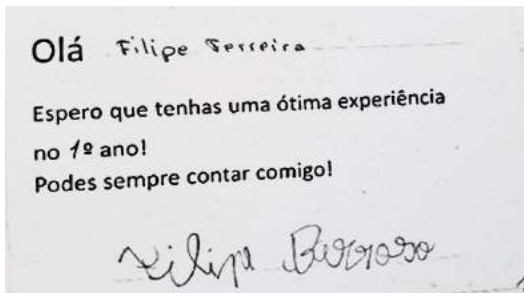 Olá Filipe Ferreira
Espero que tenhas uma ótima experiência
no 1º ano!
Podes sempre contar comigo!
Filipe Barroso